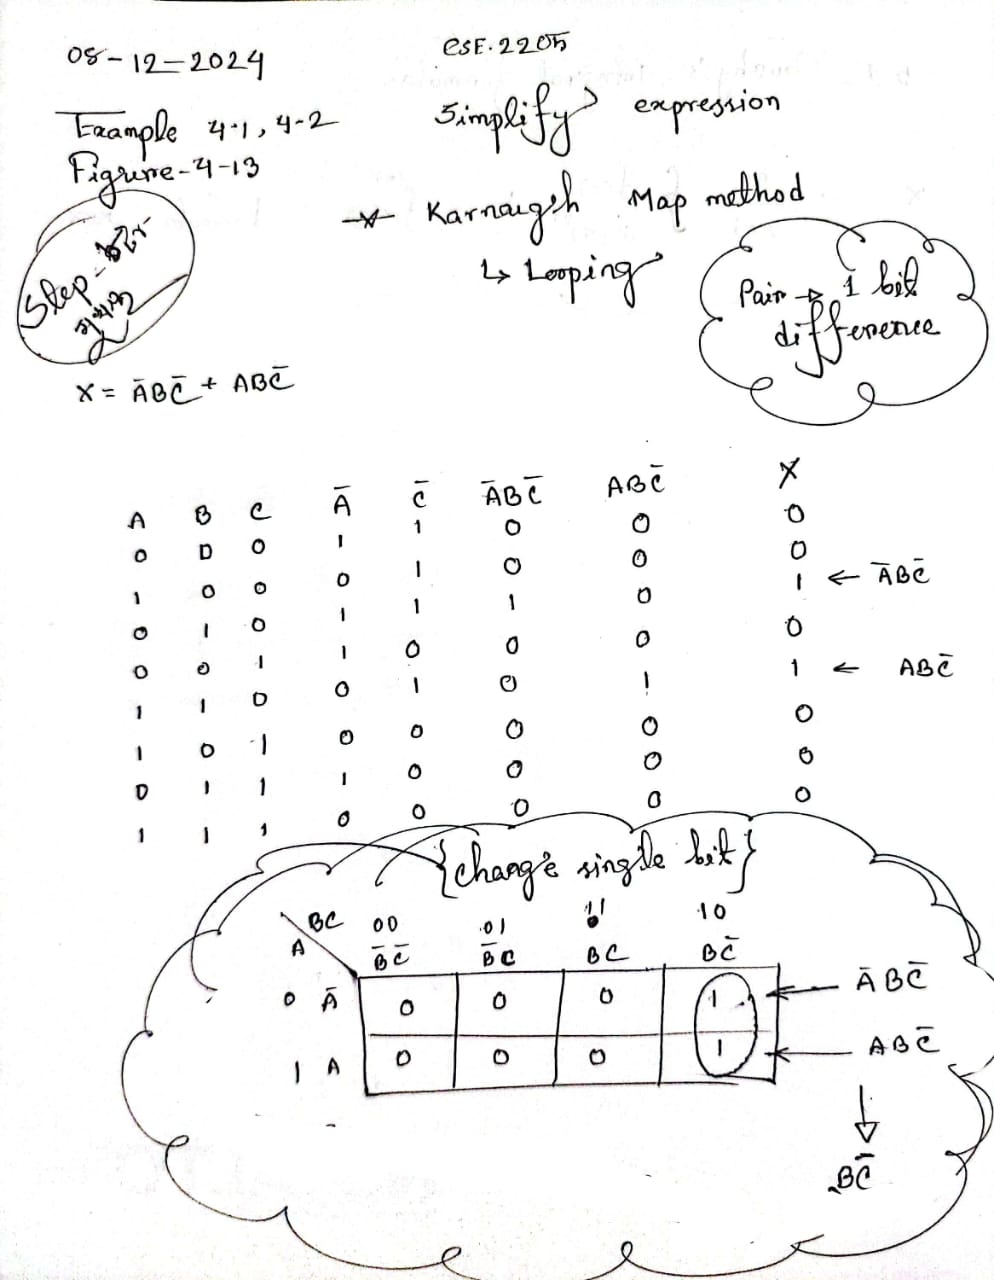 08-12-2024
CSE-2205
Example 4-1, 4-2
Simplify expression
Figure-4-13
* Karnaugh Map method
↳ Looping
Step-
Pair → 1 bit
difference
X = A̅BC̅ + ABC̅
A B C A̅ C̅ A̅BC̅ ABC̅ X
0 0 0 1 1 0 0 0
1 0 0 0 1 0 0 0
0 1 0 1 1 1 0 1 ← A̅BC̅
0 0 1 1 0 0 0 0
1 1 0 0 1 0 1 1 ← ABC̅
1 0 1 0 0 0 0 0
0 1 1 1 0 0 0 0
1 1 1 0 0 0 0 0
{change single bit}
BC 00 01 11 10
A B̅C̅ B̅C BC BC̅
0 A̅ 0 0 0 1 ← A̅BC̅
1 A 0 0 0 1 ← ABC̅
↓
BC̅